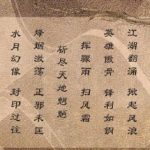 江湖翻涌 掀起风浪
英雄傲骨 锋利如钢
挥骤雨 扫风霜
斩尽天地魍魉
烽烟激荡 正邪未匡
水月幻像 封印过往